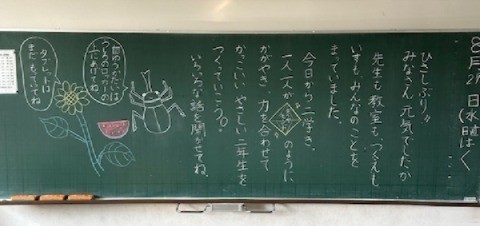 8月29日(水)晴
ひさしぶり!!
みなさん、元気でしたか
先生も教室も、つくえも
いすも、みんなのことを
まっていました。
今日から二学き、
一人一人が のように
かがやき、力を合わせて
かっこいい、やさしい二年生を
つくっていこう。
いろいろな話を聞かせてね。
うしろのロッカーの
上においてね
タブレットは
まだ もっていてね